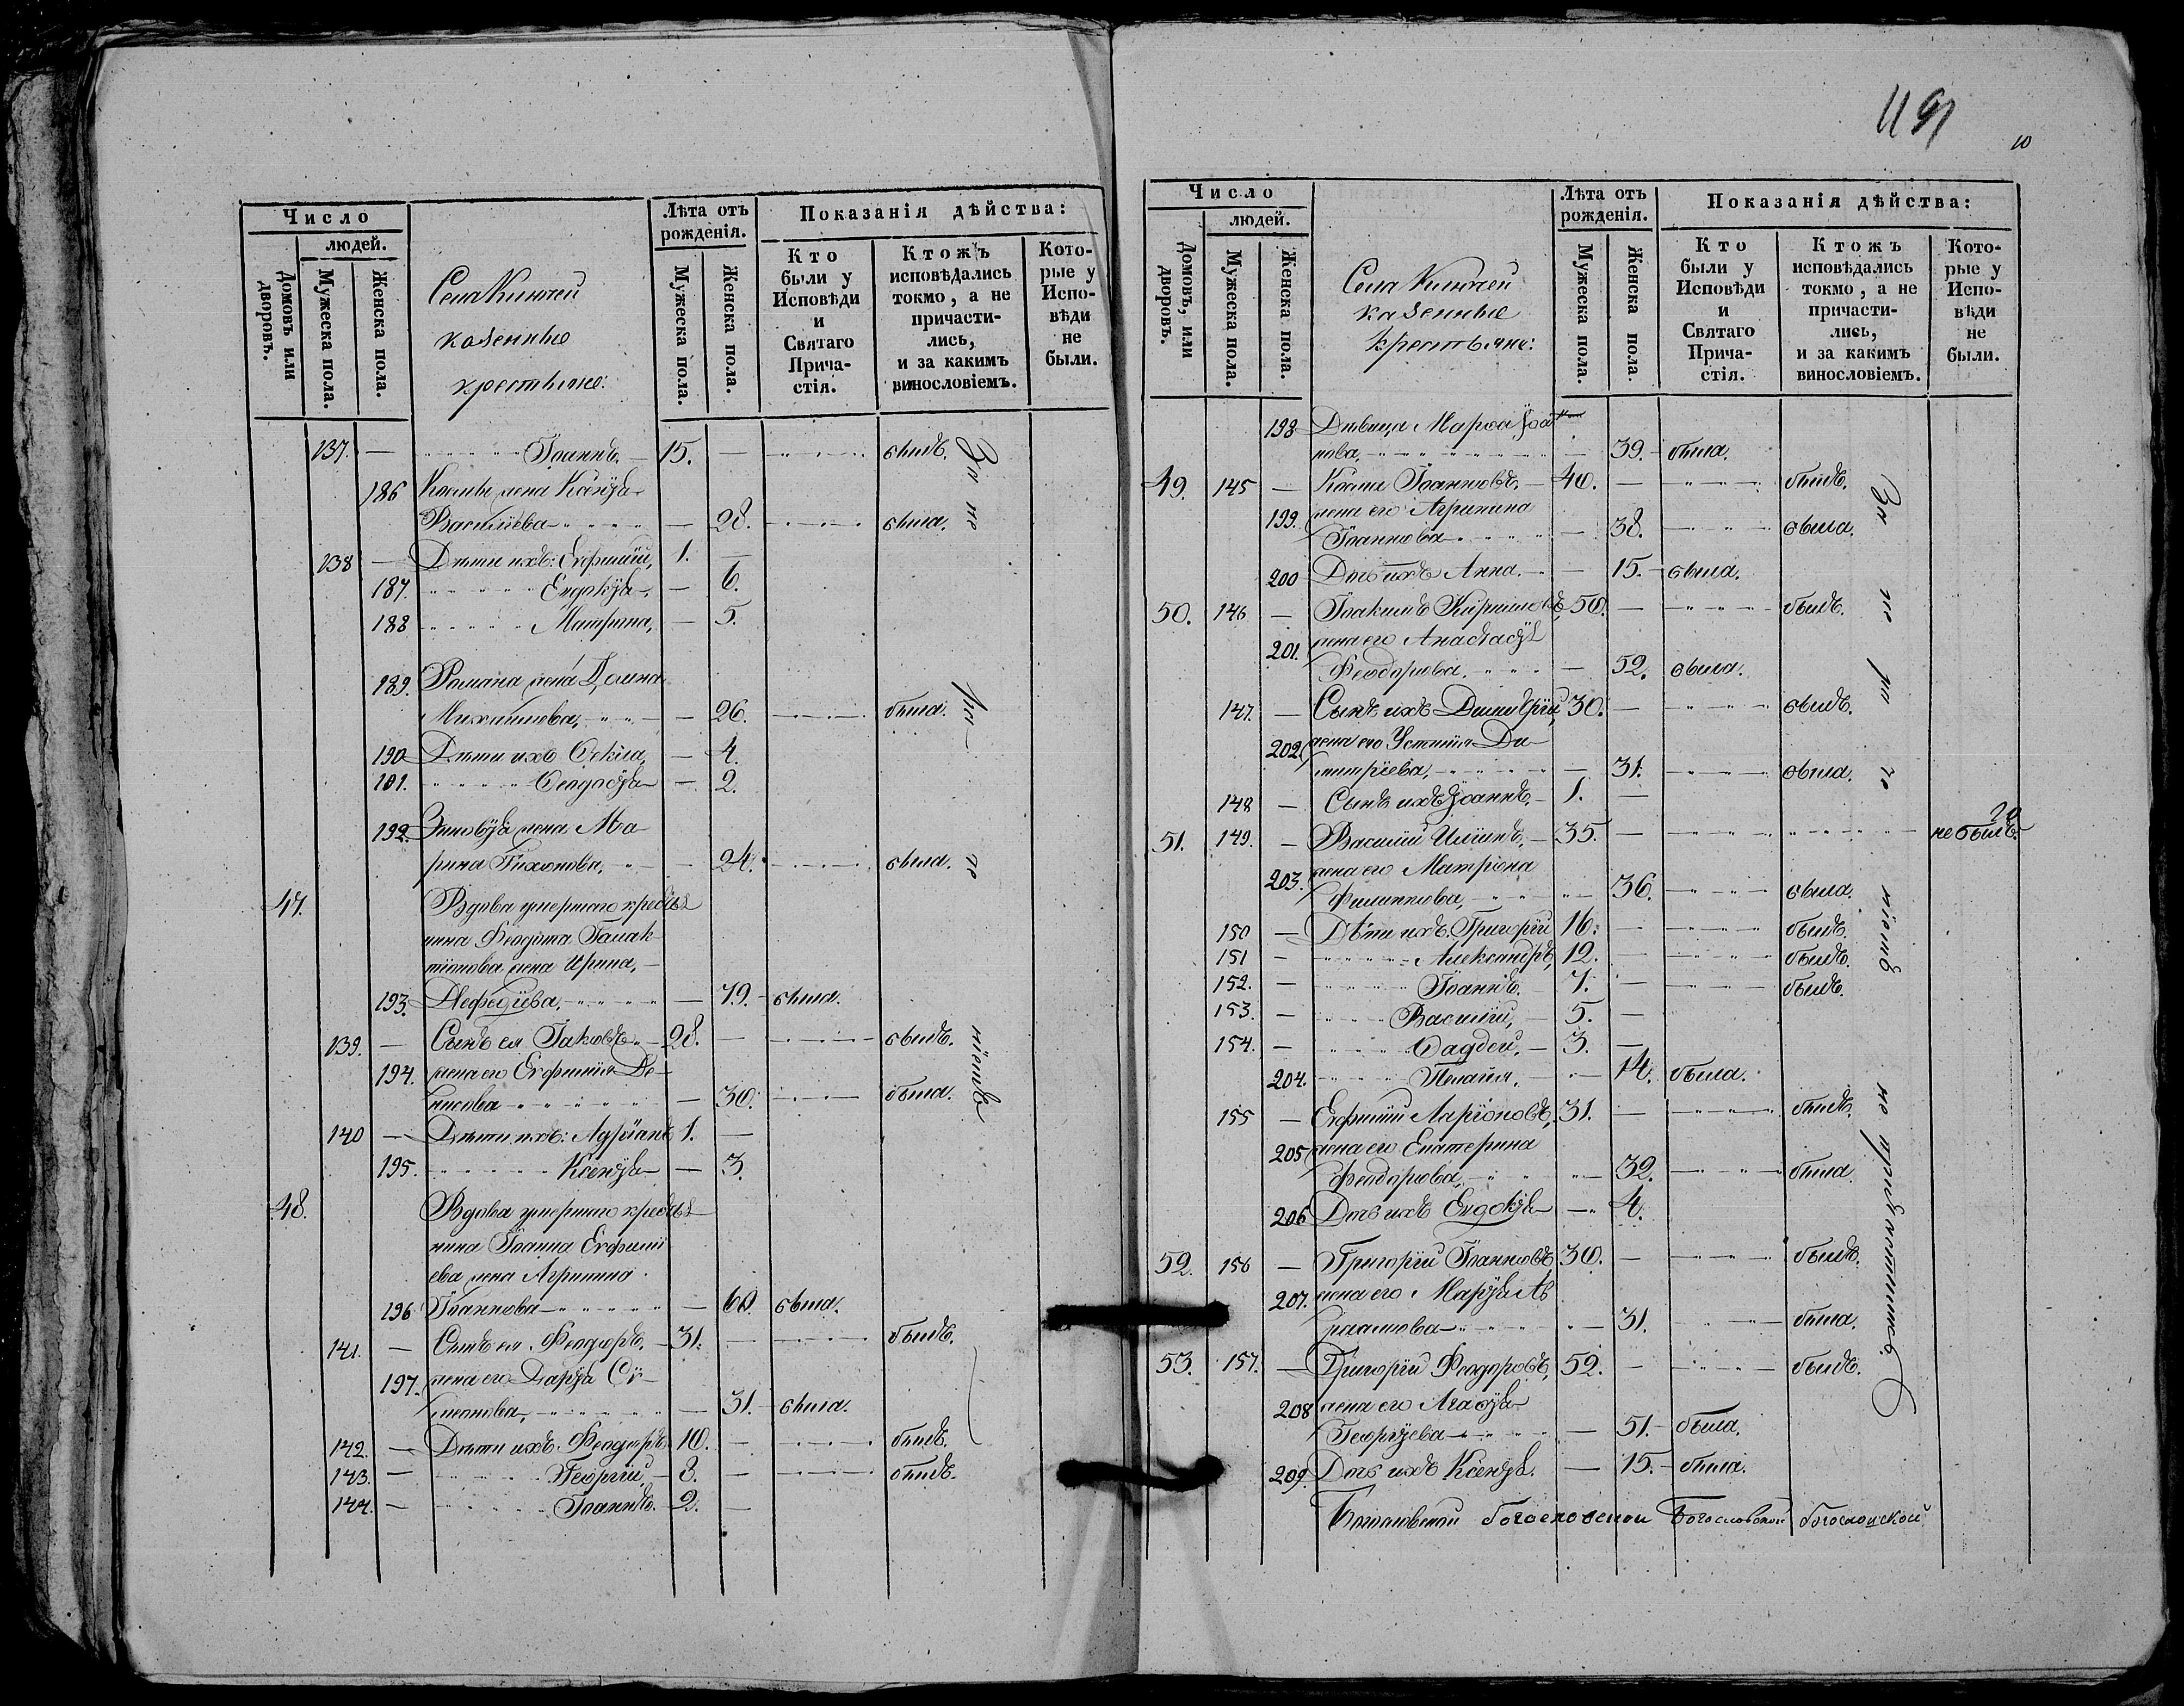 Число
людей.
Домовъ или дворовъ.
Мужеска пола.
Женска пола.
Села Ключей
казенные
крестьяне:
Лѣта отъ рожденія.
Мужеска пола.
Женска пола.
Показанія дѣйства:
Кто были у Исповѣди и Святаго Прича-стія.
Ктожъ исповѣдались токмо, а не причасти-лись, и за какимъ винословіемъ.
Кото-рые у Испо-вѣди не были.
137. — Іоаннъ. — 15. — былъ.
186 Космы жена Ксенія
Васильева — 28. была.
138 — Дѣти ихъ: Евфимій, 1. —
187. Евдокія — 6.
188 Матрона, — 5.
189. Романа жена Домна
Михайлова, — 26. была.
190 Дѣти ихъ Ѳекла, — 4.
191. Ѳеодосія — 2.
192. Зиновія жена Ма
рина Тихонова, — 24. была.
47. Вдова умершаго кресть
нина Ѳеодота Галак
тіонова жена Ирина,
193. Меѳодіева, — 79. была.
139. — Сынъ ея Іаковъ — 28. — былъ.
194. жена его Евфимія Де-
нисова — 30. была.
140 — Дѣти ихъ: Адріанъ 1. —
195. Ксенія — 3.
48. Вдова умершаго кресть
нина Іоанна Евфимі
ева жена Агрипина
196 Іоаннова — 60. была.
141. — Сынъ ея Ѳеодоръ, — 31. — былъ.
197. жена его Дарія Си-
меонова, — 31. была.
142. — Дѣти ихъ: Ѳеодоръ 10. — былъ.
143. — Георгій, — 8. — былъ.
144. — Іоаннъ. — 2. —
За не
ма-
лолѣтств
1191
10
Число
людей.
Домовъ, или дворовъ.
Мужеска пола.
Женска пола.
Села Ключей
казенные
крестьяне:
Лѣта отъ рожденія.
Мужеска пола.
Женска пола.
Показанія дѣйства:
Кто были у Исповѣди и Святаго Прича-стія.
Ктожъ исповѣдались токмо, а не причасти-лись, и за какимъ винословіемъ.
Кото-рые у Испо-вѣди не были.
198 Дѣвица Марѳа Іоан
нова, — 39. была.
49. 145 — Косма Іоанновъ, — 40. — былъ.
199. жена его Агрипина
Іоаннова — 38. была.
200 Дочь ихъ Анна. — 15. была.
50. 146 — Іоакимъ Кириловъ, 50. — былъ.
201. жена его Анастасія
Ѳеодорова. — 52. была.
147. — Сынъ ихъ Димитрій 30. — былъ.
202. жена его Устинія Ди-
митріева, — 31. была.
148 — Сынъ ихъ Іоаннъ. — 1. —
20
51. 149. — Василій Ильинъ, — 35. — не былъ.
203. жена его Матрона
Филиппова, — 36. была.
150 — Дѣти ихъ: Григорій 16. — былъ.
151 — Александръ, 12. — былъ.
152. — Іоаннъ. — 7. — былъ.
153. — Василій, — 5. —
154. — Ѳаддей, — 3. —
204. Пелагія. — 14. была.
155 — Евфимій Ларіоновъ, 31. — былъ.
205 жена его Екатерина
Ѳеодорова, — 32. была.
206 Дочь ихъ Евдокія — 4.
52. 156 — Григорій Іоанновъ 30. — былъ.
207. жена его Марія Ав
раамова — 31. была.
53. 157. — Григорій Ѳеодоровъ, 52. — былъ.
208 жена его Агаѳія
Георгіева — 51. была.
209. Дочь ихъ Ксенія. — 15. была.
За не ра че
ніемъ
не
Богословской Богословской